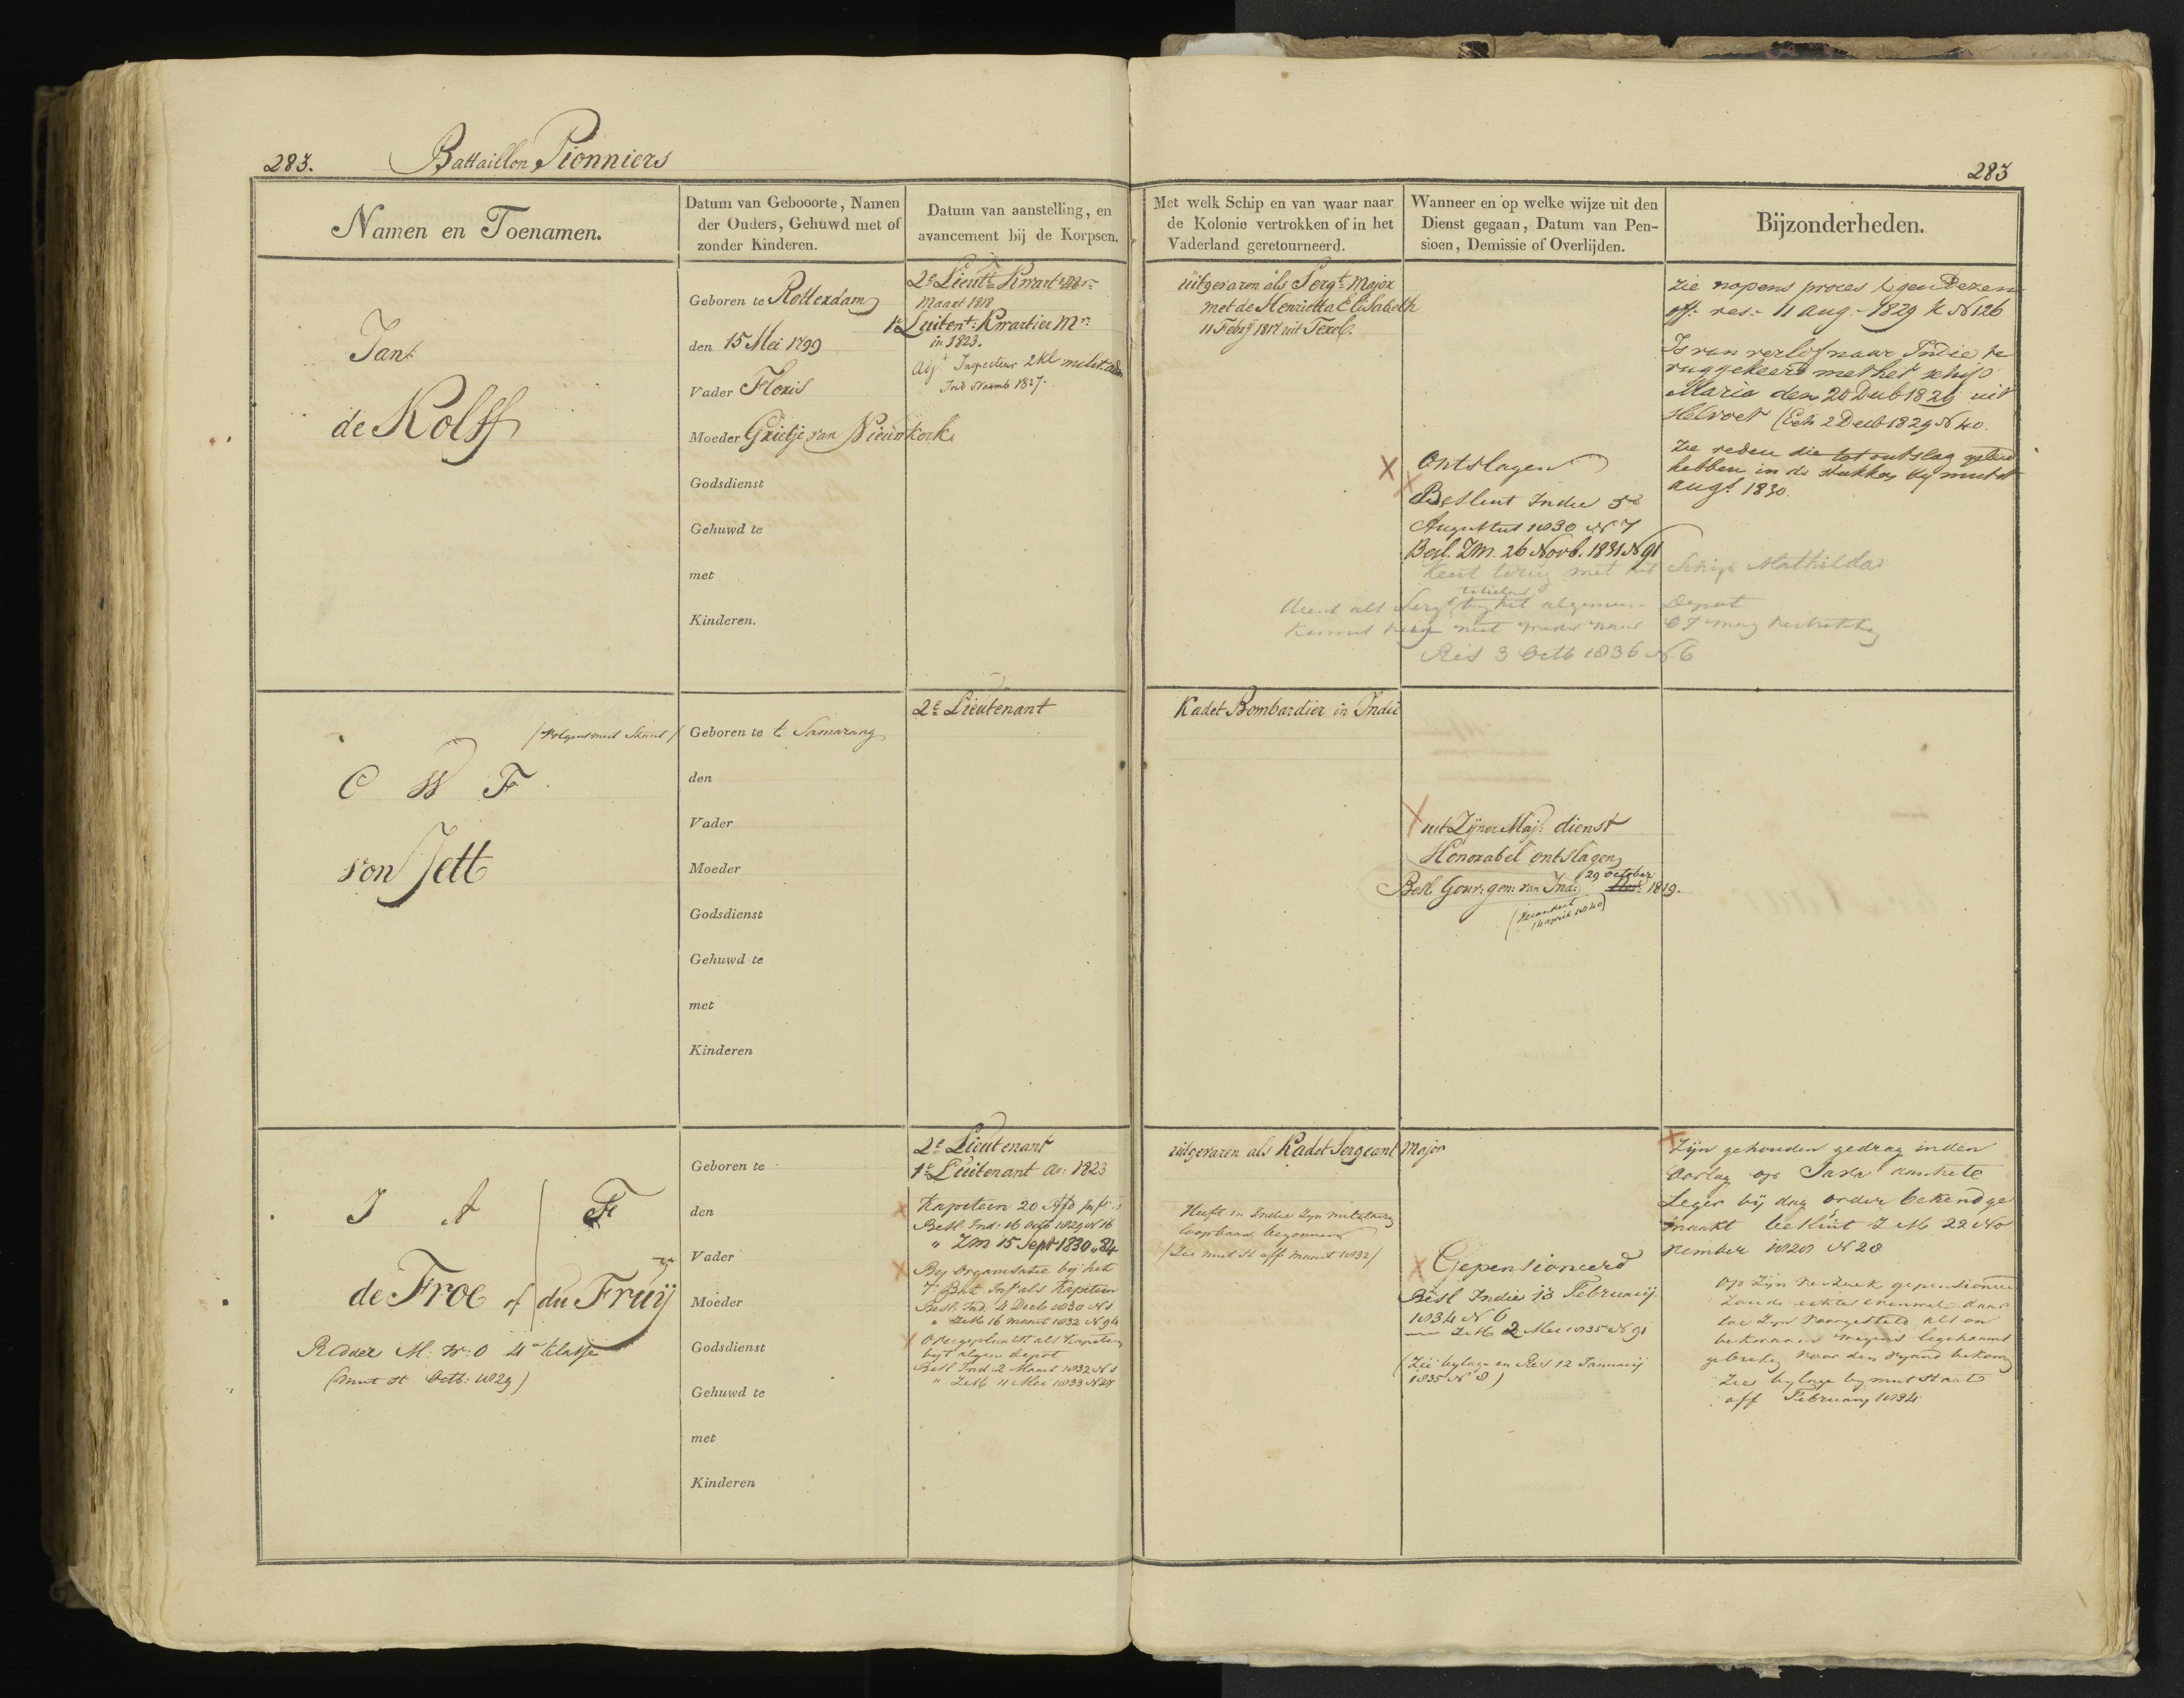 283.
Battaillon Pionniers
283
Namen en Toenamen.
Datum van Gebooorte, Namen
der Ouders, Gehuwd met of
zonder Kinderen.
Datum van aanstelling, en
avancement bij de Korpsen.
Met welk Schip en van waar naar
de Kolonie vertrokken of in het
Vaderland geretourneerd.
Wanneer en op welke wijze uit den
Dienst gegaan, Datum van Pen-
sioen, Demissie of Overlijden.
Bijzonderheden.
Jan
de Kolff
Geboren te Rotterdam
den 15 Mei 1799
Vader Floris
Moeder Grietje van Nieuwkerk
Godsdienst
Gehuwd te
met
Kinderen.
2e Lieutt Kwart Mr
Maart 1818
1e Luitent: Kwartier Mr:
in 1823.
Adjt Inspecteur 2 kl milit. adm
Ind Novemb 1827.
uitgevaren als Sergt Major
met de Henrietta Elisabeth
11 Febrij 1817 uit Texel.
Ontslagen
Besluit Indie 5
Augustus 1830 N 7
Besl. ZM. 26 Novb. 1831 N 91
Keert terug met het Schip Mathilda
dient als Sergt titulair by het algemeen Depot
niet weder naar OI mag
Res 3 Octb 1836 N 6
Zie nopens proces tegen Dezen
off: res: 11 aug. 1829 k N 126
Is van verlof naar Indie te
ruggekeerd met het schip
Maria den 20 Decb 1829 uit
Helvoet (Exh 2 Decb 1829 N 40.
De reden die tot ontslag geleid
hebben in de stukken bij mut st
augt. 1830.
(Volgens mut Staat)
C W F
von Jett
Geboren te te Samarang
den
Vader
Moeder
Godsdienst
Gehuwd te
met
Kinderen
2e Lieutenant
Kadet Bombardier in Indie
uit Zijner Maj: dienst
Honorabel ontslagen
29 october
Besl. Gouv: gen: van Ind: 1819.
14 april 1840)
J A F
de Froe of du Fruij
Ridder M: W: O 4e klasse
(mut st Octb: 1829)
Geboren te
den
Vader
Moeder
Godsdienst
Gehuwd te
met
Kinderen
2e Lieutenant
1e Luitenant Ao: 1823
Kapitein 20 Afd Inf
Besl. Ind: 16 Octb 1829 N 16
" ZM 15 Sept 1830 " 84
Bij Organisatie bij het
7 Bat Inf als Kapitein
Besl: Ind: 4 Decb 1830 N 1
" ZM 16 maart 1832 N 94
Overgeplaatst als Kapitein
bij 't algem Depot
Besl Ind 2 Maart 1832 N 1
" ZM 11 Mei 1833 N 27
uitgevaren als Kadet Sergeant Major
Heeft in Indie zyn militaire
loopbaan begonnen
(Zie mut st off maart 1832)
Gepensioneerd
Besl Indie 13 Februarij
1834 N 6
ZM 2 Mei 1835 N 91
(Zie bylage en Res 12 Januarij
1835 N 8)
Zijn gehouden gedrag in den
Oorlog op Java aan het
Leger bij dag order bekend ge
maakt besluit ZM 22 No
vember 1828 N 28
Op zijn verzoek gepensioneerd
zoude echter evenwel daar
toe zijn voorgesteld als on
bekwaam wegens lighaams
gebreken voor den vyand bekomen
Zie bylage by mut staat
off February 1834